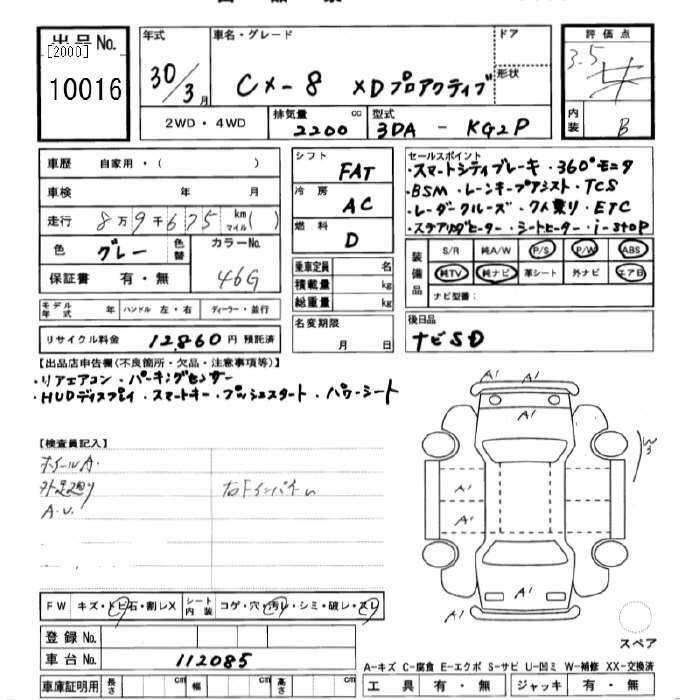 出品 No.
[2000]
10016
年式
30/3月
車名・グレード
CX-8 XDプロアクティブ
ドア
形状
2WD・4WD
排気量 cc
2200
型式
3DA - KG2P
評価点
3.5
内装
B
車歴 自家用・( )
車検 年 月
走行 8万9千675 km マイル( )
色 グレー 色替
カラーNo. 46G
保証書 有・無
シフト FAT
冷房 AC
燃料 D
乗車定員 名
積載量 kg
総重量 kg
セールスポイント
・スマートシティブレーキ・360°モニタ
・BSM・レーンキープアシスト・TCS
・レーダークルーズ・7人乗り・ETC
・ステアリングヒーター・シートヒーター・i-stop
装備品
S/R 純A/W P/S P/W ABS
純TV 純ナビ 革シート 外ナビ エア日
ナビ型番:
モデル年式 年 ハンドル 左・右 ディーラー・並行
リサイクル料金 12,860円 預託済
名変期限
月 日
後日品
ナビSD
【出品店申告欄(不良箇所・欠品・注意事項等)】
・リアエアコン・パーキングセンサー
・HUDディスプレイ・スマートキー・プッシュスタート・パワーシート
【検査員記入】
ホイールA.
外足廻り
A.U.
A1 A1
A1
W3
A1
A1
A1
A1
FW キズ・トビ石・割レX
シート内装 コゲ・穴・汚レ・シミ・破レ・スレ
登録 No.
車台 No. 112085
スペア
A-キズ C-腐食 E-エクボ S-サビ U-凹ミ W-補修 XX-交換済
車庫証明用 長さ cm 幅 cm 高さ cm
工具 有・無 ジャッキ 有・無